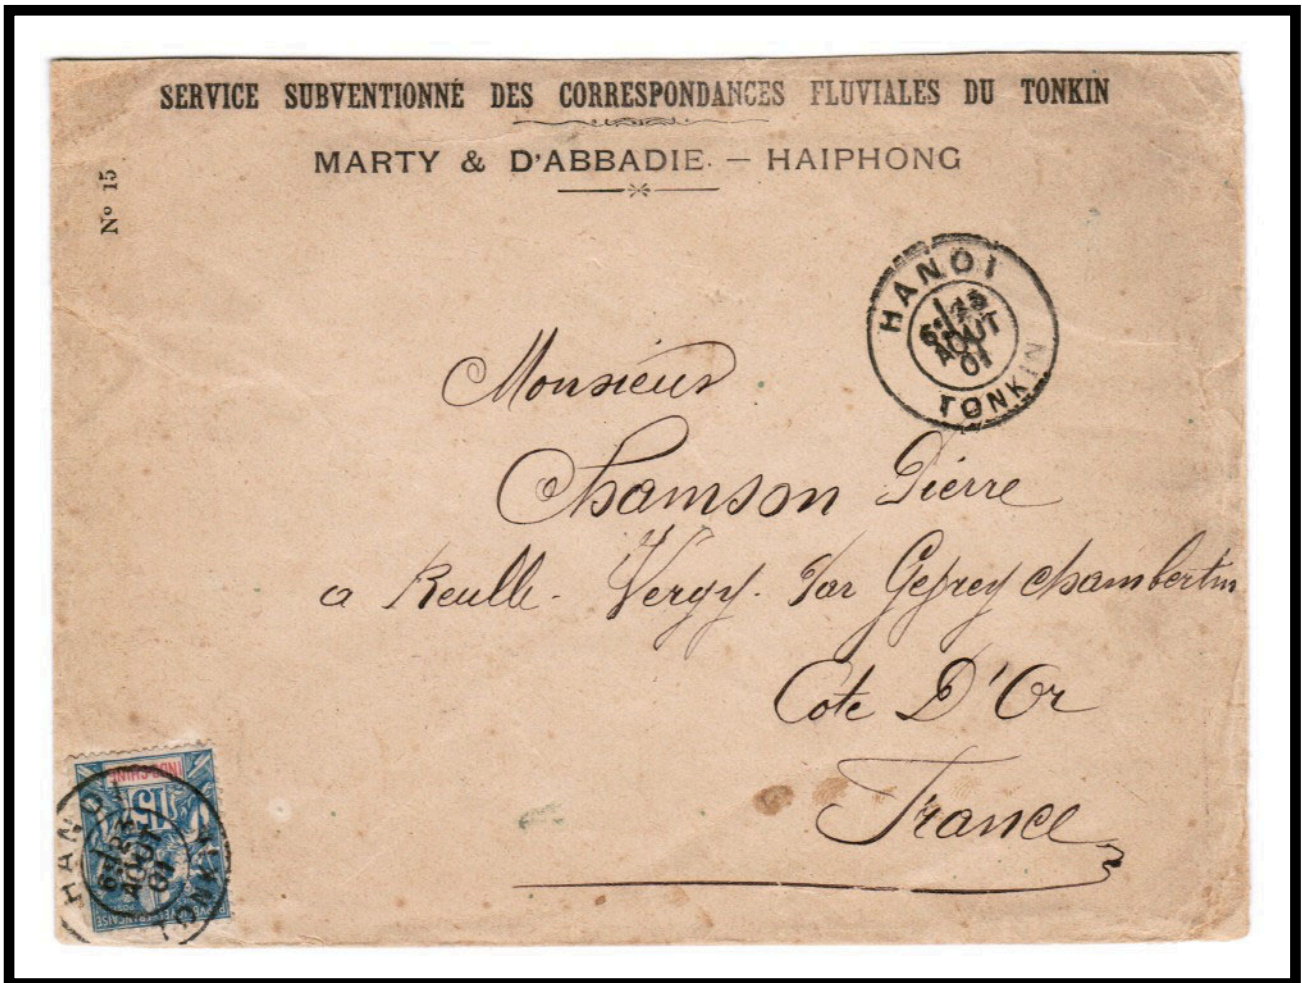 SERVICE SUBVENTIONNÉ DES CORRESPONDANCES FLUVIALES DU TONKIN
MARTY & D'ABBADIE. — HAIPHONG
Nº 15
HANOI
AOUT
01
TONKIN
Monsieur
Chamson Pierre
a Reulle-Vergy. Par Gefrey chambertin
Cote D'Or
France
INDO-CHINE
15
HANOI
AOUT
01
TONKIN